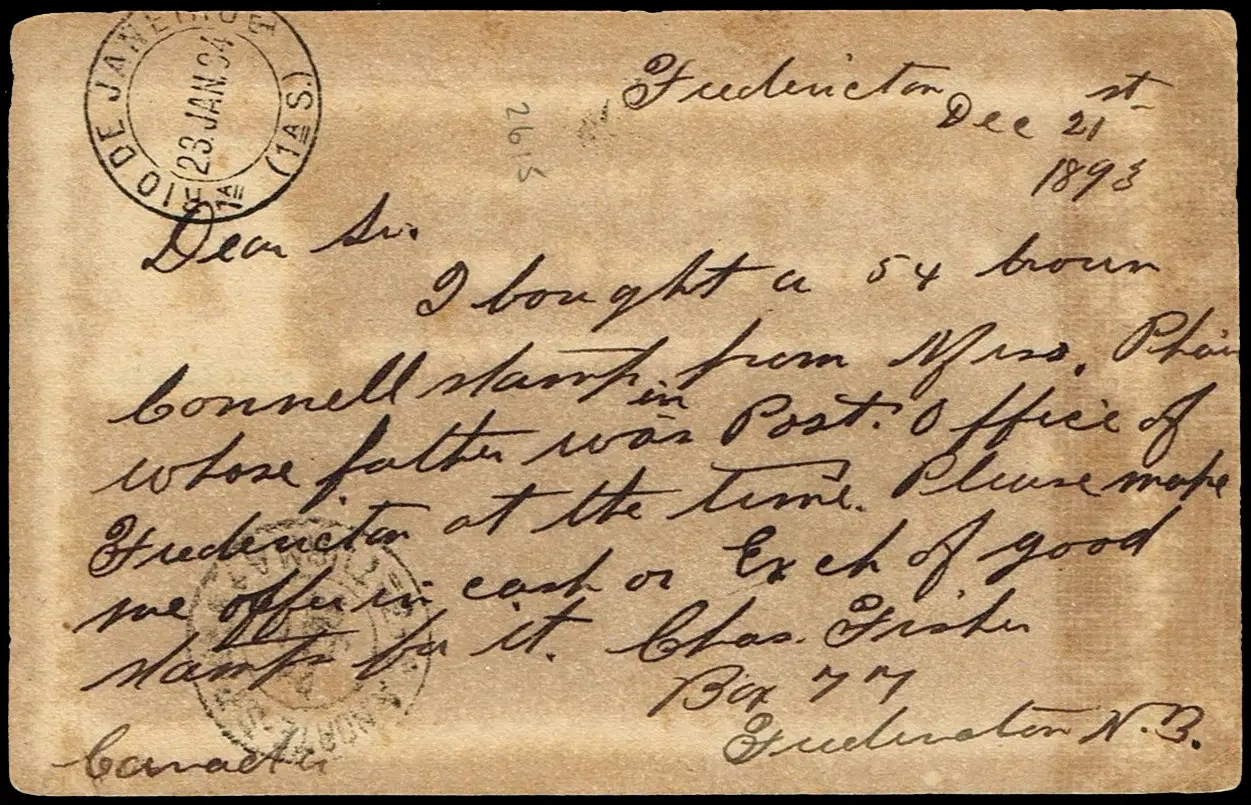 RIO DE JANEIRO
23 JAN. 94
1ª (1ª S.)
2615
Fredericton
Dec 21st
1893
Dear Sir.
I bought a 5¢ brown
Connell stamp from Mrs. Phair
whose father was in Post. Office of
Fredericton at the time. Please make
me offer in cash or Exch of good
stamps for it. Chas. Fisher
Box 77
Fredericton N.B.
Canada